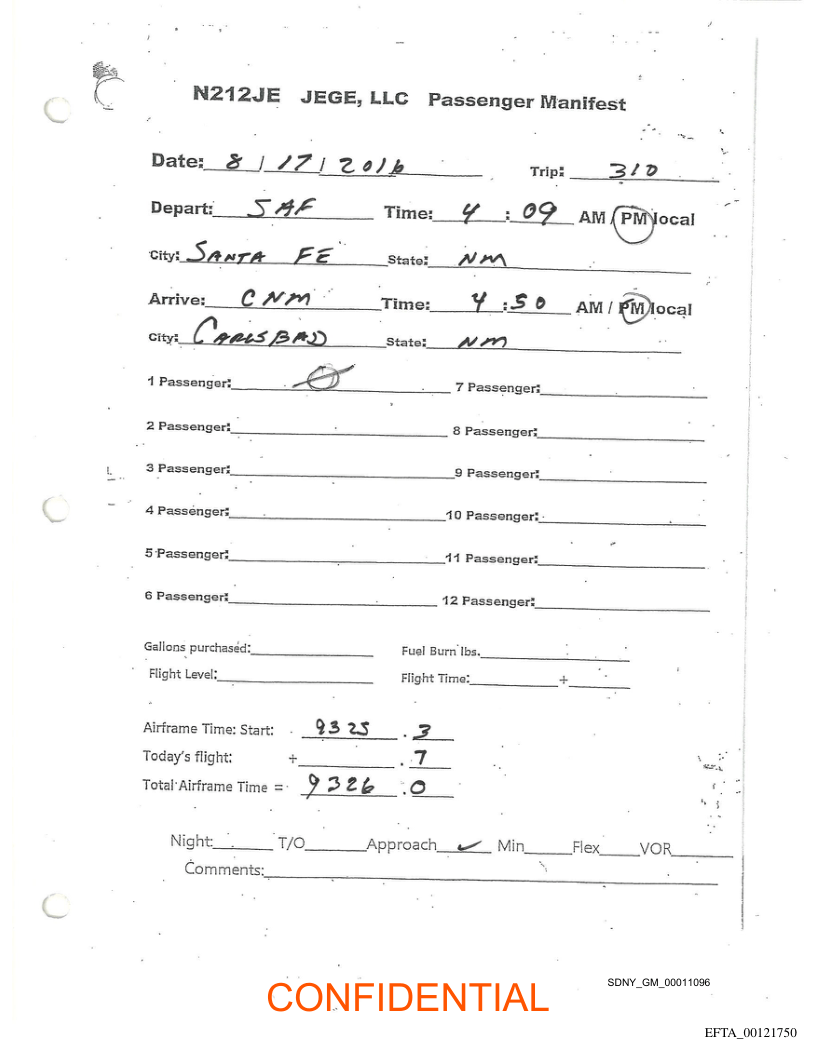 N212JE JEGE, LLC Passenger Manifest
Date: 8 / 17 / 2016 Trip: 310
Depart: SAF Time: 4 : 09 AM / PM local
City: SANTA FE State: NM
Arrive: CNM Time: 4 : 50 AM / PM local
City: CARLSBAD State: NM
1 Passenger: 7 Passenger:
2 Passenger: 8 Passenger:
3 Passenger: 9 Passenger:
4 Passenger: 10 Passenger:
5 Passenger: 11 Passenger:
6 Passenger: 12 Passenger:
Gallons purchased: Fuel Burn lbs.
Flight Level: Flight Time: +
Airframe Time: Start: 9325 . 3
Today's flight: + . 7
Total Airframe Time = 9326 . 0
Night: T/O Approach ✓ Min Flex VOR
Comments:
CONFIDENTIAL
SDNY_GM_00011096
EFTA_00121750